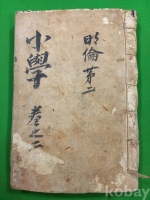 明倫第二
小學
卷之二
kobay